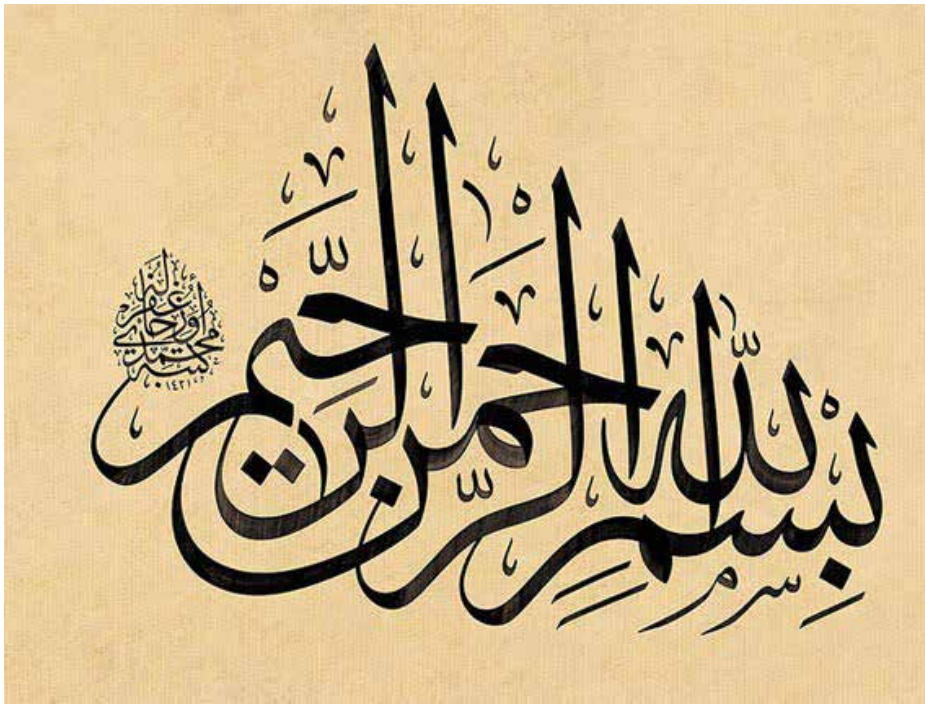 بِسْمِ اللّٰهِ الرَّحْمٰنِ الرَّحِيْمِ
كتبه محمد اوزجاى غفر له
١٤٣١